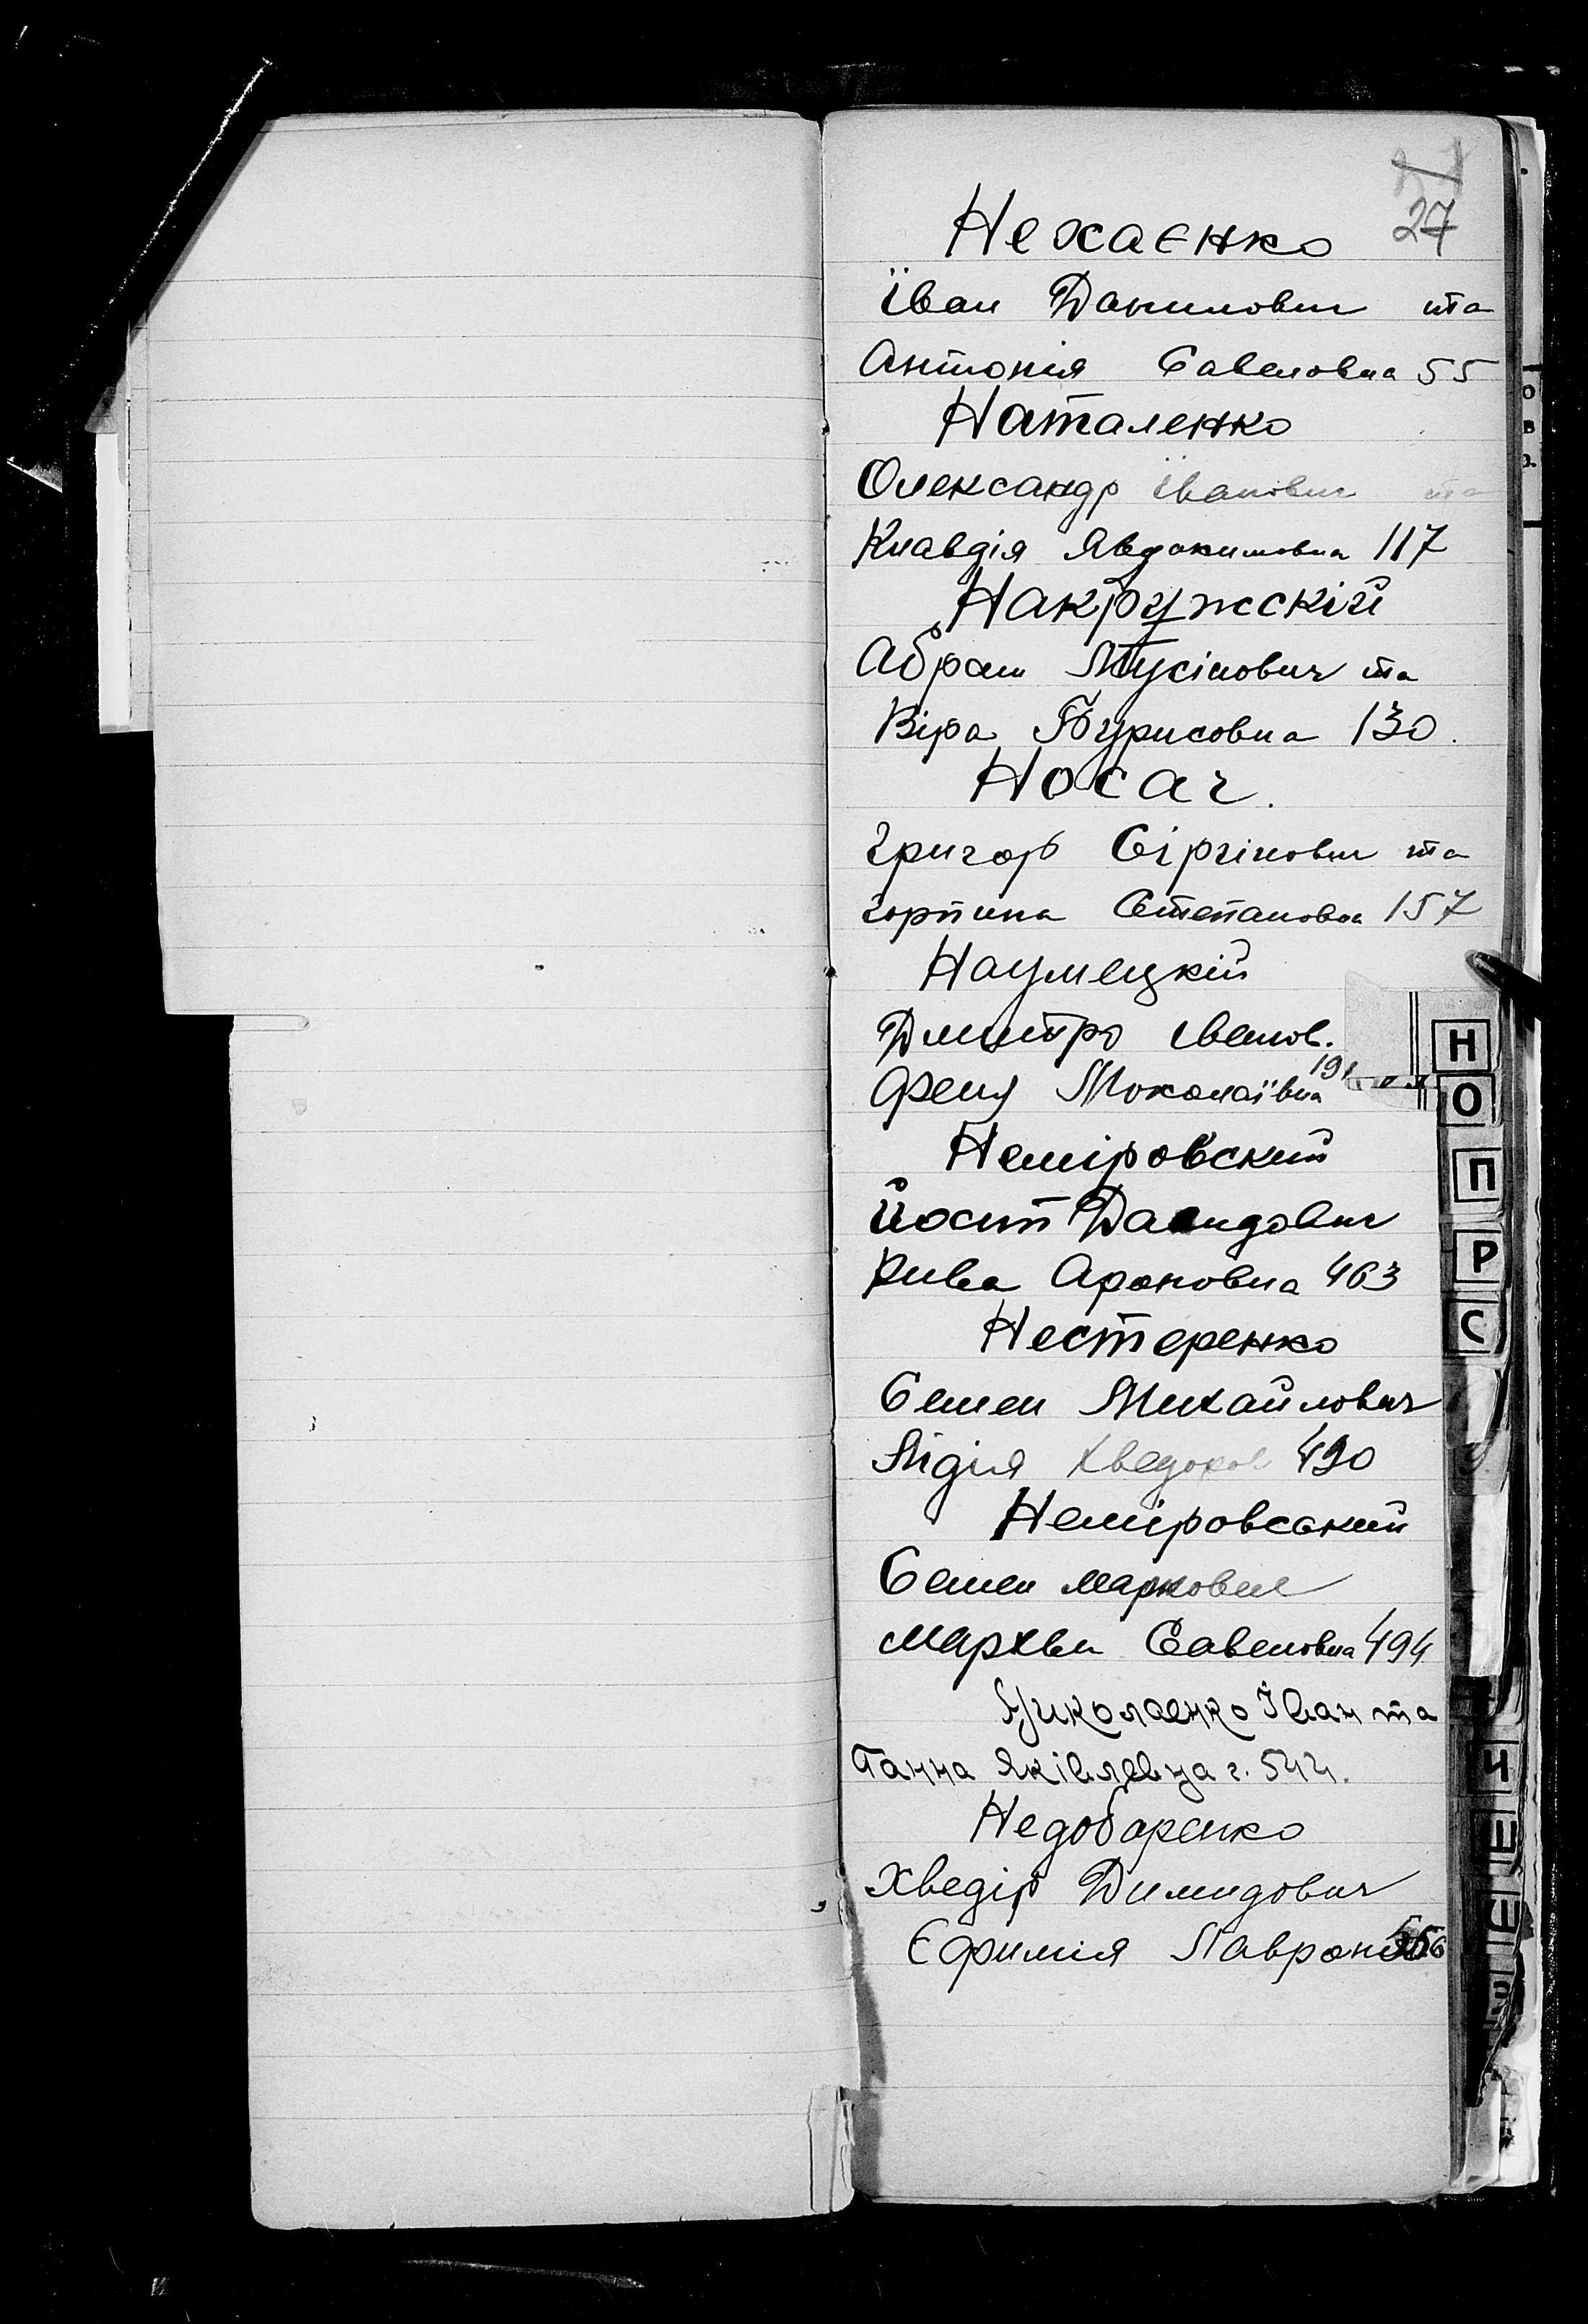 27
Нехаєнко
Їван Данилович та
Антонія Савеловна 55
Наталенко
Олександр Їванович та
Клавдія Явдокимовна 117
Накружскій
Абрам Мусінович та
Віра Бурисовна 130.
Носач.
Григор Сіргіиович та
Горпина Степановна 157
Наумецкій
Дмитро Іванов.
Феня Моколаївна 191
Неміровский
Йосип Давидович
Рива Ароновна 463
Нестеренко
Семен Михайлович
Лідія Хведоров 490
Неміровський
Семен Маркович
Мархва Савеловна 494
Николаенко Їван та
Ганна Яківлевна г. 544.
Недоборенко
Хведір Димидович
Єфимія Лаврон 556
Н
О
П
Р
С